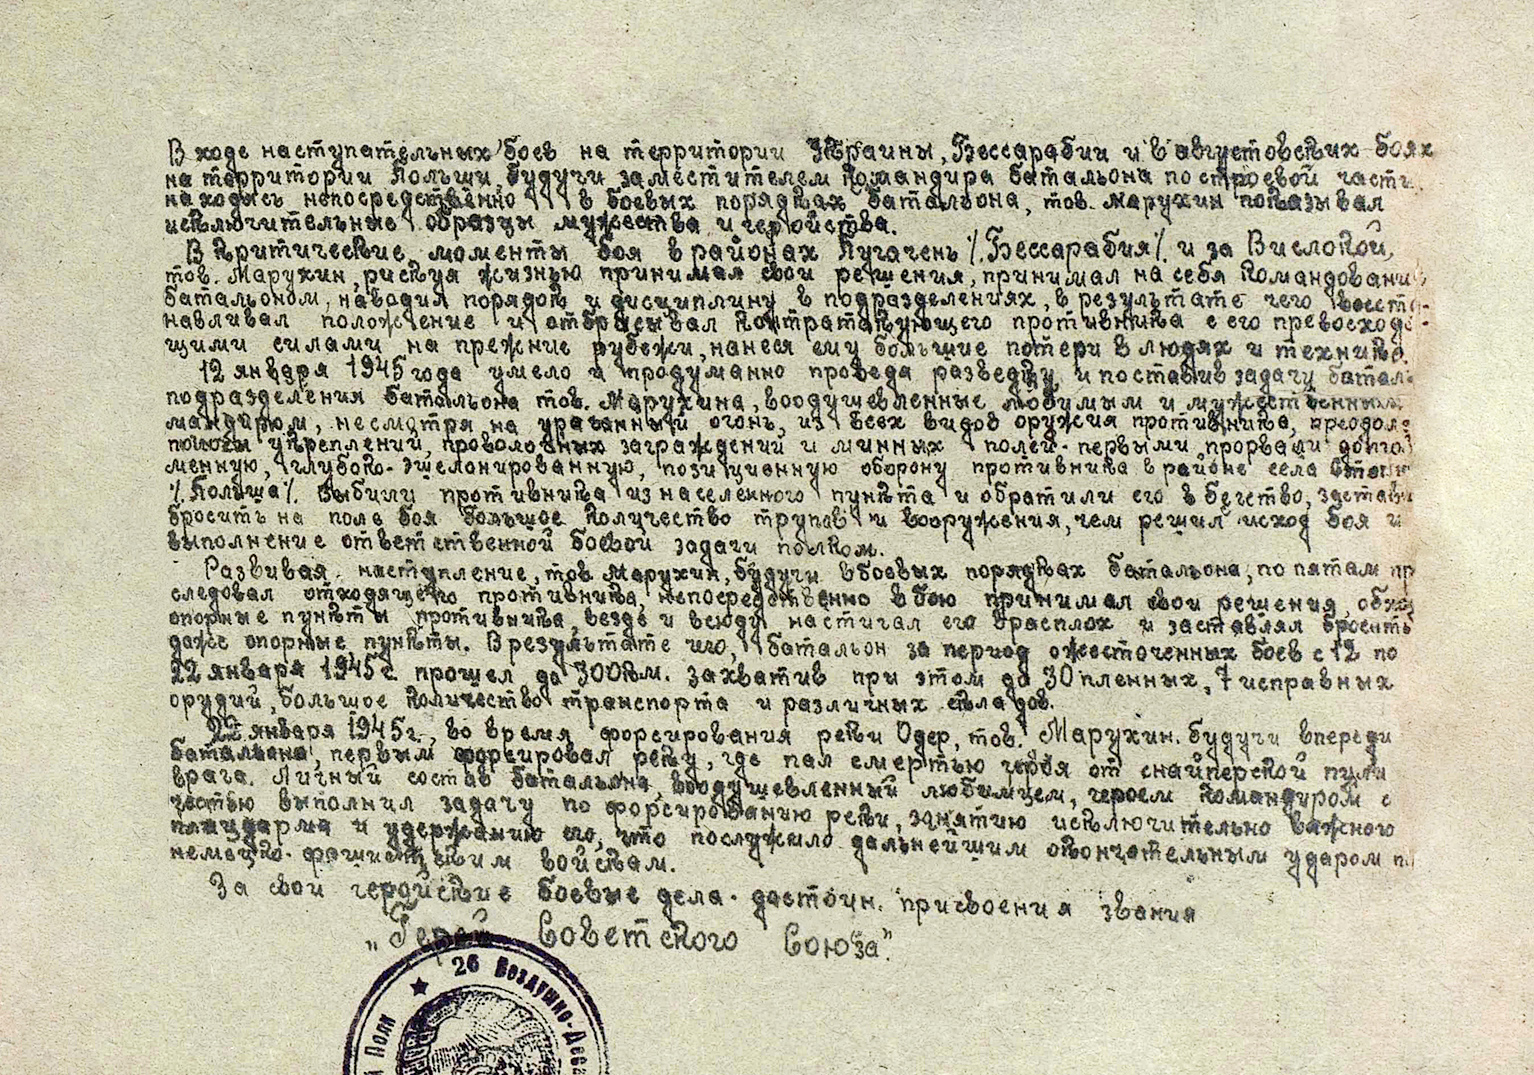 В ходе наступательных боев на территории Украины, Бессарабии и в августовских боях
на территории Польши, будучи заместителем командира батальона по строевой части,
находясь непосредственно в боевых порядках батальона, тов. Марухин показывал
исключительные образцы мужества и геройства.
В критические моменты боя в районах Пугачень /Бессарабия/ и за Вислокой,
тов. Марухин, рискуя жизнью принимал свои решения, принимал на себя командование
батальоном, наводил порядок и дисциплину в подразделениях, в результате чего восста-
навливал положение и отбрасывал контратакующего противника с его превосходя-
щими силами на прежние рубежи, нанеся ему большие потери в людях и технике.
12 января 1945 года умело и продуманно проведя разведку, и поставив задачу батал
подразделения батальона тов. Марухина, воодушевленные любимым и мужественным
мандиром, несмотря на ураганный огонь, из всех видов оружия противника, преодоле
полосы укреплений, проволочных заграждений и минных полей - первыми прорвали долго
менную, глубоко-эшелонированную, позиционную оборону противника в районе села
/Польша/. Выбили противника из населенного пункта и обратили его в бегство, застави
бросить на поле боя большое количество трупов и вооружения, чем решил исход боя и
выполнение ответственной боевой задачи полком.
Развивая наступление, тов. Марухин, будучи в боевых порядках батальона, по пятам пр
следовал отходящего противника, непосредственно в бою принимал свои решения, обхо
опорные пункты противника, везде и всюду настигал его врасплох и заставлял бросить
даже опорные пункты. В результате чего, батальон за период ожесточенных боев с 12 по
22 января 1945 г. прошел до 300км. захватив при этом до 30 пленных, 7 исправных
орудий, большое количество транспорта и различных складов.
22 января 1945г., во время форсирования реки Одер, тов. Марухин. будучи впереди
батальона, первым форсировал реку, где пал смертью героя от снайперской пули
врага. Личный состав батальона, воодушевленный любимцем, героем командиром с
честью выполнил задачу по форсированию реки, занятию исключительно важного
плацдарма и удержанию его, что послужило дальнейшим окончательным ударом п
немецко-фашистским войскам.
За свои геройские боевые дела - достоин. присвоения звания
„Герой Советского Союза".
26 Воздушно-Деса
Полк